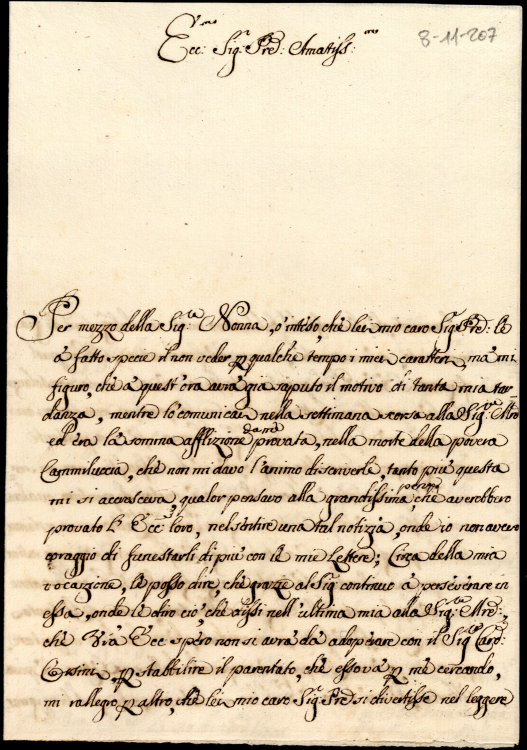 8-11-207
Ecc:mo Sig:r Pre: Amatiss:mo
Per mezzo della Sig:ra Nonna, ò inteso, che lei mio caro Sig:r Pre: le
à fatto specie il non veder p qualche tempo i miei caratteri, ma mi
figuro, che à quest'ora avrà già saputo il motivo di tanta mia tar-
danza, mentre lo comunicai nella settimana scorsa alla Sig:ra
ed era la somma afflizione da me provata, nella morte della povera
Cammiluccia, che non mi davo l'animo di scriverle, tanto più questa
mi si accresceva, qualor pensavo alla grandissima pena, che averebbero
provato l' Ecc:ze loro, nel sentire una tal notizia, onde io non avevo
coraggio di funestarli di più con le mie Lettere; Circa della mia
vocazione, le posso dire, che grazie al Sig:r continuo à perseverare in
essa, onde le dirò ciò, che dissi nell'ultima mia alla Sig:ra
che V:ra Ecc: spero non si avrà da adoperare con il Sig:r Card:
Corsini, p stabbilire il parentato, che esso và p me cercando,
mi rallegro p altro, che lei mio caro Sig:r Pre: si divertisse nel leggere